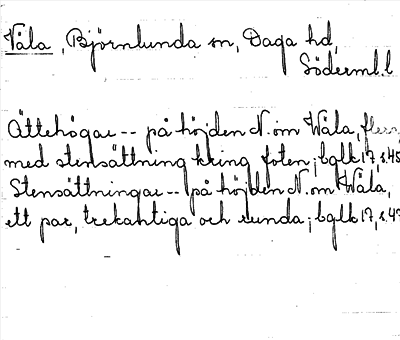 Våla, Björnlunda sn, Daga hd,
Söderml. l
Ättehögar -- på höjden N. om Wåla, flera,
med stensättning kring foten; bglk 17, s. 45
Stensättningar -- på höjden N. om Wåla,
ett par, trekantiga och runda; bglk 17, s.